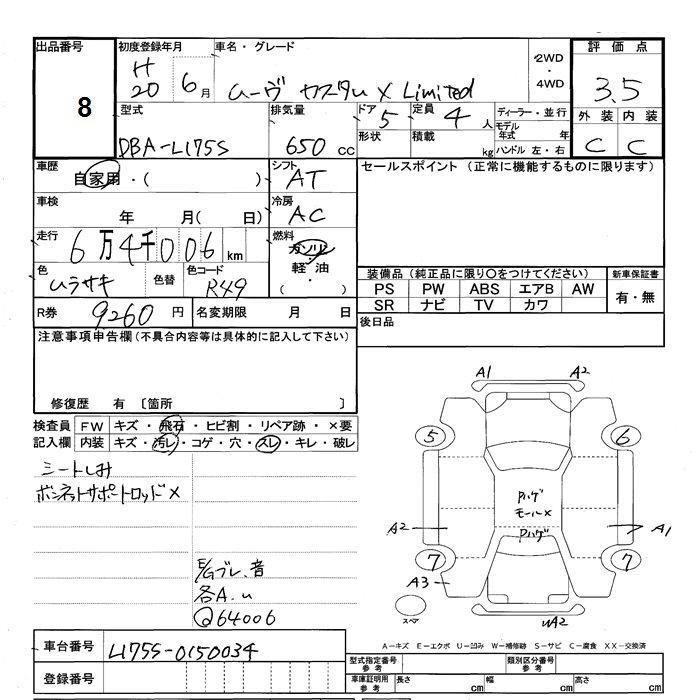 出品番号
8
初度登録年月
H 20 6 月
車名・グレード
ムーヴ カスタム X Limited
2WD
・
4WD
評価点
3.5
外装 内装
C C
型式
DBA-L175S
排気量
650 cc
ドア 5
定員 4 人
形状
積載 kg
ディーラー・並行
モデル年式 年
ハンドル 左・右
車歴
自家用・( )
シフト
AT
車検
年 月( 日)
冷房
AC
走行
6万4千006 km
燃料
ガソリン
・
軽油
・
( )
色
ムラサキ
色替
色コード
R49
R券 9260 円
名変期限 月 日
セールスポイント(正常に機能するものに限ります)
装備品(純正品に限り○をつけてください)
PS PW ABS エアB AW
SR ナビ TV カワ
新車保証書
有・無
後日品
注意事項申告欄(不具合内容等は具体的に記入して下さい)
修復歴 有 〔箇所 〕
検査員 記入欄
FW キズ・飛石・ヒビ割・リペア跡・×要
内装 キズ・汚レ・コゲ・穴・スレ・キレ・破レ
シートしみ
ボンネットサポートロッド×
E/Gブレ、音
各A.u
Q64006
A1 A2
5 6
Pハゲ
モール×
Pハゲ
A2 A1
7 7
A3
スペア
WA2
A-キズ E-エクボ U-凹み W-補修跡 S-サビ C-腐食 XX-交換済
車台番号 L175S-0150034
登録番号
型式指定番号 参考
類別区分番号 参考
車庫証明用 参考
長さ cm 幅 cm 高さ cm